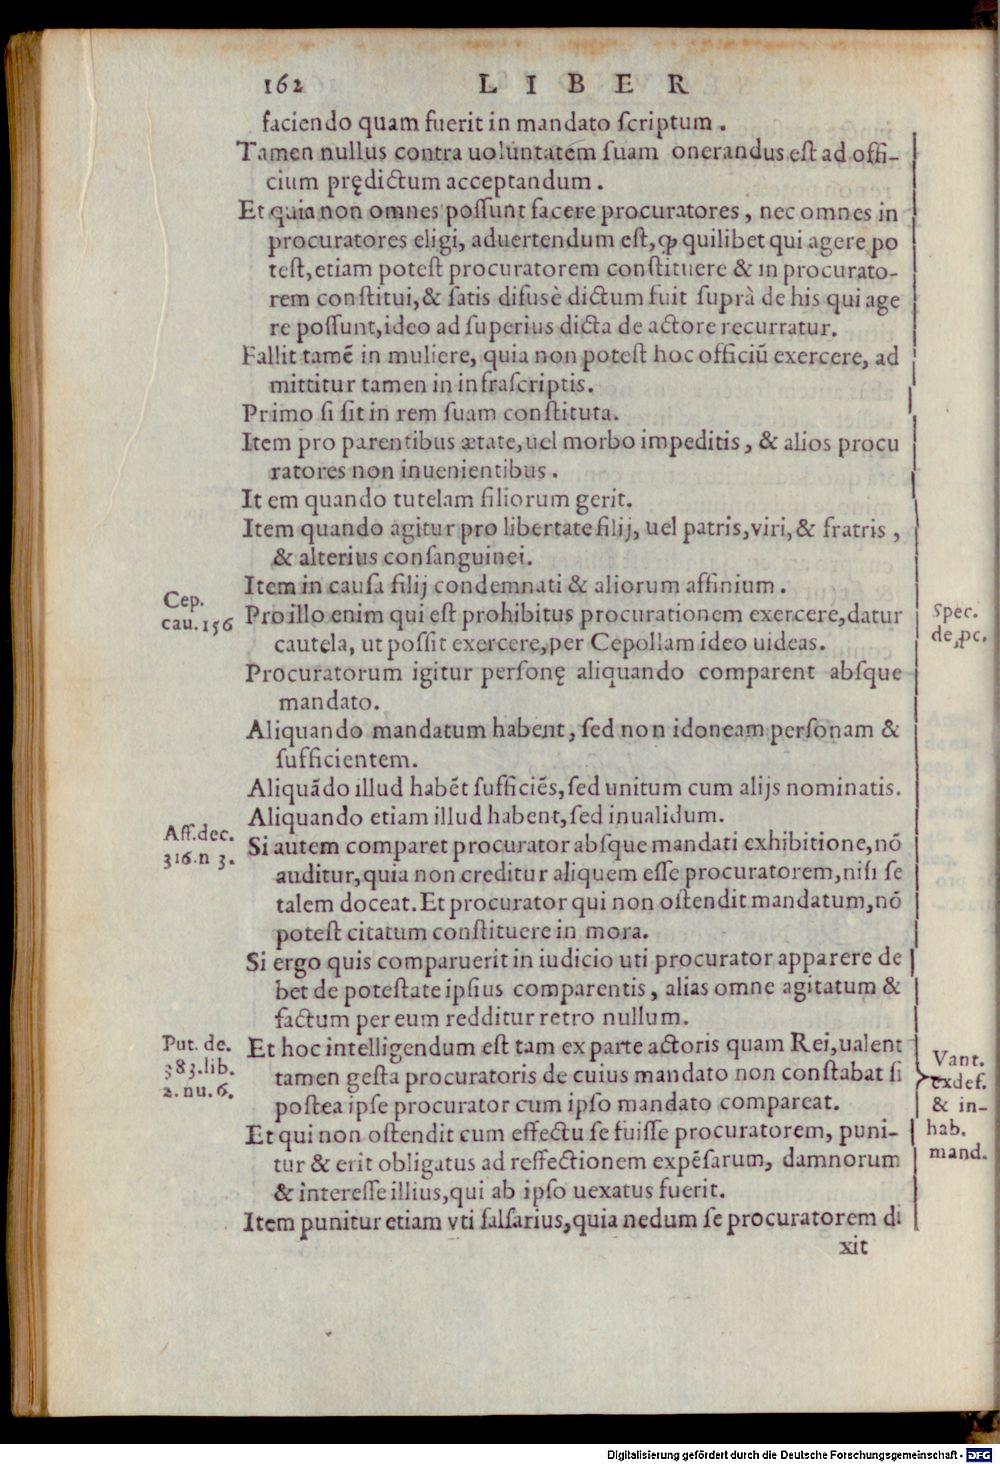 162 LIBER
faciendo quam fuerit in mandato ſcriptum.
Tamen nullus contra uoluntatem ſuam onerandus eſt ad offi-
cium prędictum acceptandum.
Et quia non omnes poſſunt facere procuratores, nec omnes in
procuratores eligi, aduertendum eſt, ꝙ quilibet qui agere po
teſt, etiam poteſt procuratorem conſtituere & in procurato-
rem conſtitui, & ſatis difusè dictum fuit ſuprà de his qui age
re poſſunt, ideo ad ſuperius dicta de actore recurratur.
Fallit tamẽ in muliere, quia non poteſt hoc officiũ exercere, ad
mittitur tamen in infraſcriptis.
Primo ſi ſit in rem ſuam conſtituta.
Item pro parentibus ætate, uel morbo impeditis, & alios procu
ratores non inuenientibus.
It em quando tutelam filiorum gerit.
Item quando agitur pro libertate filij, uel patris, viri, & fratris,
& alterius conſanguinei.
Item in cauſa filij condemnati & aliorum affinium.
Cep.
cau. 156
Pro illo enim qui eſt prohibitus procurationem exercere, datur
cautela, ut poſſit exercere, per Cepollam ideo uideas.
Spec.
de ꝓc.
Procuratorum igitur perſonę aliquando comparent abſque
mandato.
Aliquando mandatum habent, ſed non idoneam perſonam &
ſufficientem.
Aliquãdo illud habẽt ſufficiẽs, ſed unitum cum alijs nominatis.
Aliquando etiam illud habent, ſed inualidum.
Aff. dec.
316. n 3.
Si autem comparet procurator abſque mandati exhibitione, nõ
auditur, quia non creditur aliquem eſſe procuratorem, niſi ſe
talem doceat. Et procurator qui non oſtendit mandatum, nõ
poteſt citatum conſtituere in mora.
Si ergo quis comparuerit in iudicio uti procurator apparere de
bet de poteſtate ipſius comparentis, alias omne agitatum &
factum per eum redditur retro nullum.
Put. de.
383. lib.
2. nu. 6.
Et hoc intelligendum eſt tam ex parte actoris quam Rei, ualent
tamen geſta procuratoris de cuius mandato non conſtabat ſi
poſtea ipſe procurator cum ipſo mandato compareat.
Vant.
exdef.
& in-
hab.
mand.
Et qui non oſtendit cum effectu ſe fuiſſe procuratorem, puni-
tur & erit obligatus ad reffectionem expẽſarum, damnorum
& intereſſe illius, qui ab ipſo uexatus fuerit.
Item punitur etiam vti falſarius, quia nedum ſe procuratorem di
xit
Digitalisierung gefördert durch die Deutsche Forschungsgemeinschaft - DFG